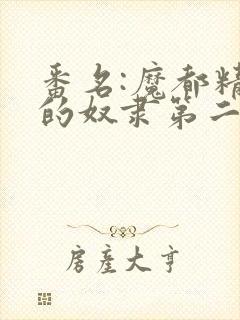 番名:魔都精
的奴隶第二
房产大亨